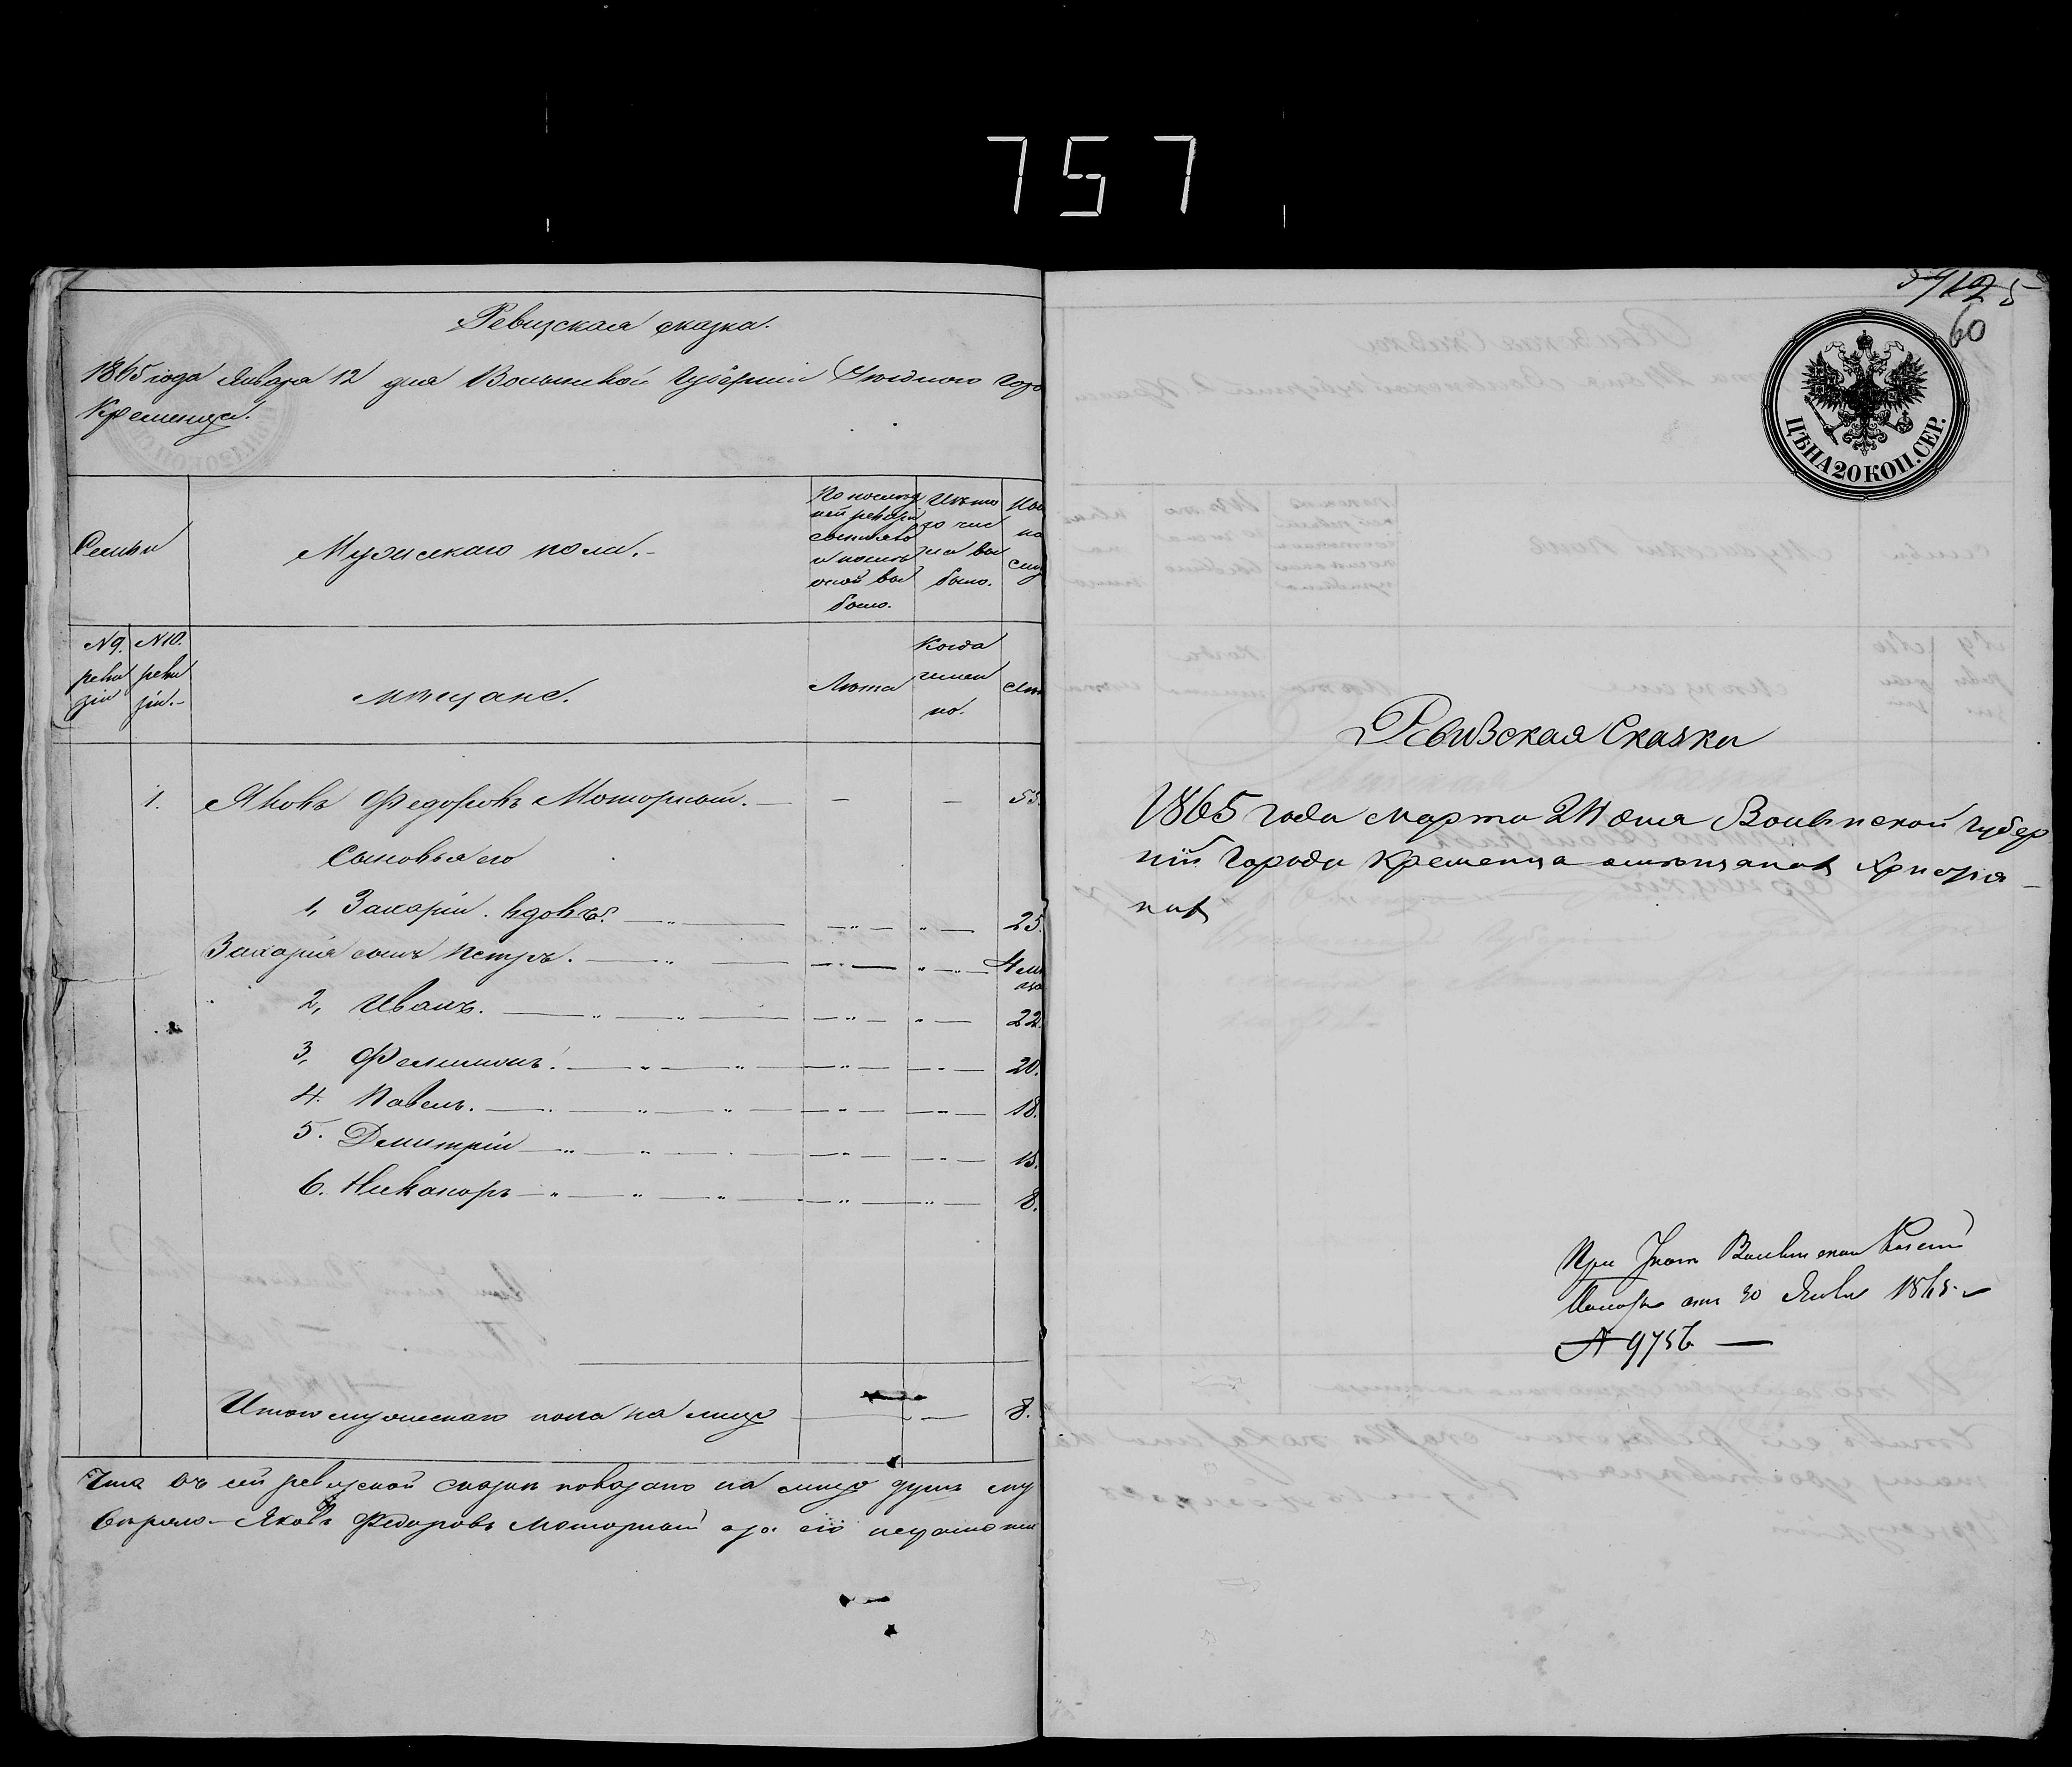 757
Ревизская сказка.
1865 года Января 12 дня Волынской Губерніи Уѣзднаго Горо
Кременца.
Семьи
Мужескаго пола.-
По послѣд
ней ревизіи
состояло
и послѣ
оной вы
было.
Изъ то
го чис
ла вы
было.
N 9.
реви
зіи
N 10.
реви
зіи.-
Мѣщане.
Лѣта
Когда
имен
но.
1. Яковъ Федоровъ Моторный. — — — 55.
Сыновья его
1, Захарій. вдовъ. 25.
Захарія сынъ Петръ. 4 мѣ
2, Иванъ. 22.
3, Филимонъ. 20.
4. Павелъ. 18.
5. Дмитрій 15.
6. Никаноръ 8.
Итого мужескаго пола на лицо 8.
Что въ сей ревизской сказкѣ показано на лицо душъ му
Яковъ Федоровъ Моторный а за его неграмотн
60
ЦѢНА 20 КОП. СЕР.
Ревизская Сказка
1865 года марта 24 дня Волынской Губер
ніи Города Кременца о мѣщанах Христiя
нах
При Указѣ Волынской Казен
Палаты отъ 30 Янва 1865.
№ 9756 —